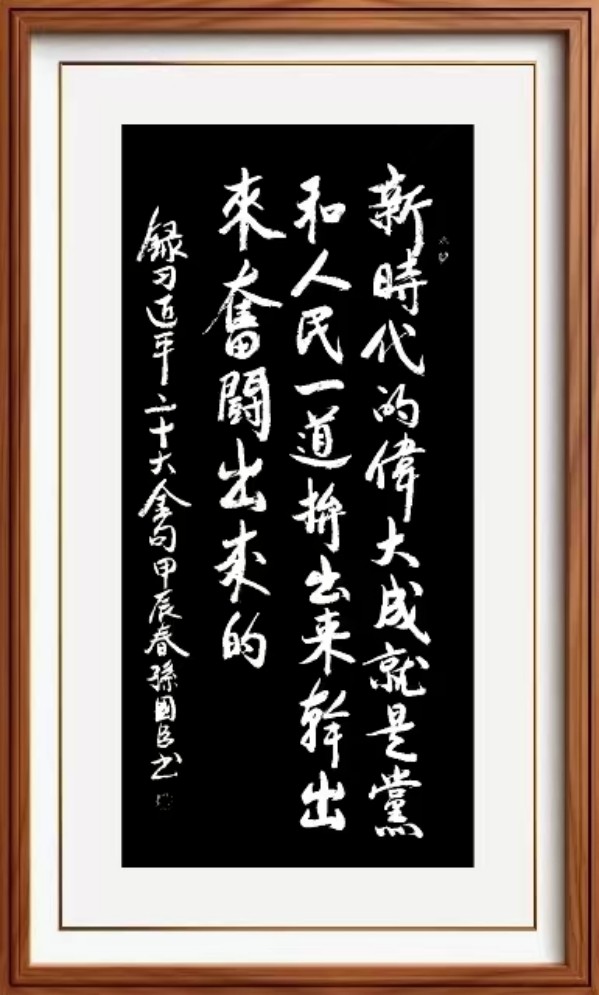 新時代的偉大成就是黨
和人民一道拚出来幹出
來奮鬪出来的
録习近平二十大金句甲辰春孫國良书